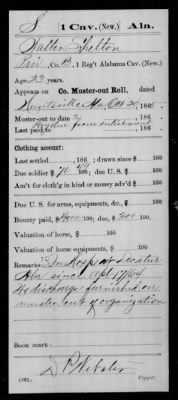 S 1 Cav. (New.) Ala.
Shelton
1 Reg't Alabama Cav. (New.)
Age 22 years.
Appears on Co. Muster-out Roll, dated
Huntsville Ala Oct 20, 1865.
Muster-out to date
Last paid to
Clothing account:
Last settled , 186 ; drawn since $ 100
Due soldier $ 100; due U. S. $ 100
Am't for cloth'g in kind or money adv'd $ 100
Due U. S. for arms, equipments, &c., $ 100
Bounty paid $ 100; due $ 300 100
Valuation of horse, $ 100
Valuation of horse equipments, $ 100
Remarks: In Hosp at Decatur
Ala since Sept 17/64
No discharge furnished on
muster out of organization
Book mark:
D P Webster
(861) Copyist.